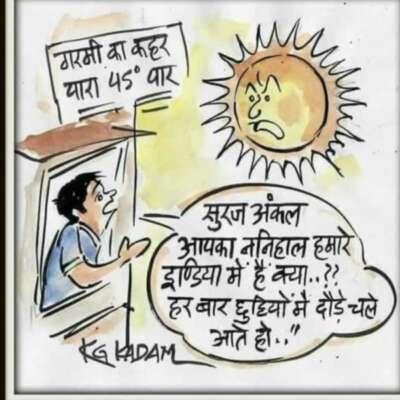 गरमी का कहर
पारा 45° पार
सुरज अंकल
आपका ननिहाल हमारे
इण्डिया में है क्या..??
हर बार छुट्टियों मे दौड़े चले
आते हो.."
KG KADAM